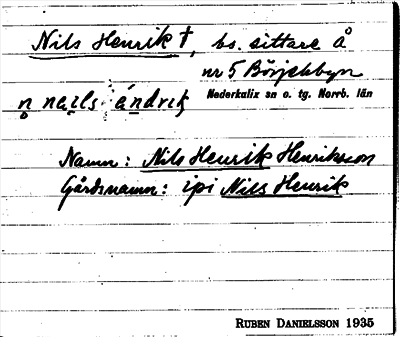 Nils Henrik †, bs. sittare å
nr 5 Börjelsbyn
Nederkalix sn o. tg. Norrb. län
n nails ándrik
Namn: Nils Henrik Henriksson
Gårdsnamn: ipi Nils Henrik
RUBEN DANIELSSON 1935